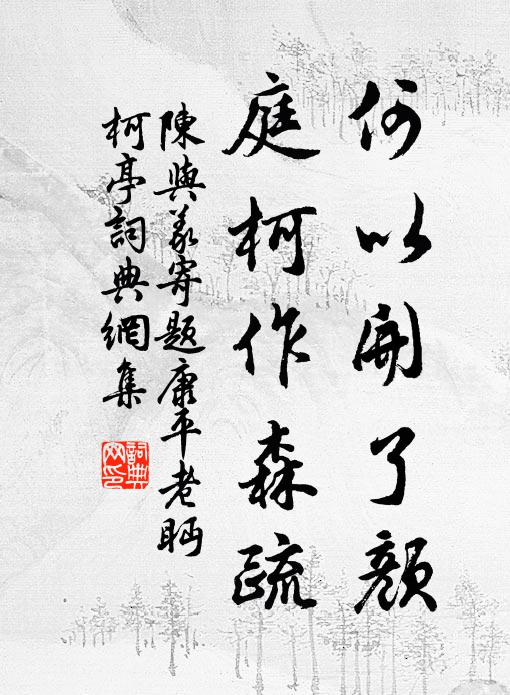 何以開了顏
庭柯作森疏
陳與義寄題康平老眄
柯亭詞典網集
詞典
网印